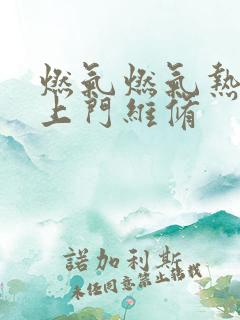 燃氣燃氣熱
上門維俻
諾加利斯
未任同意禁止轉載